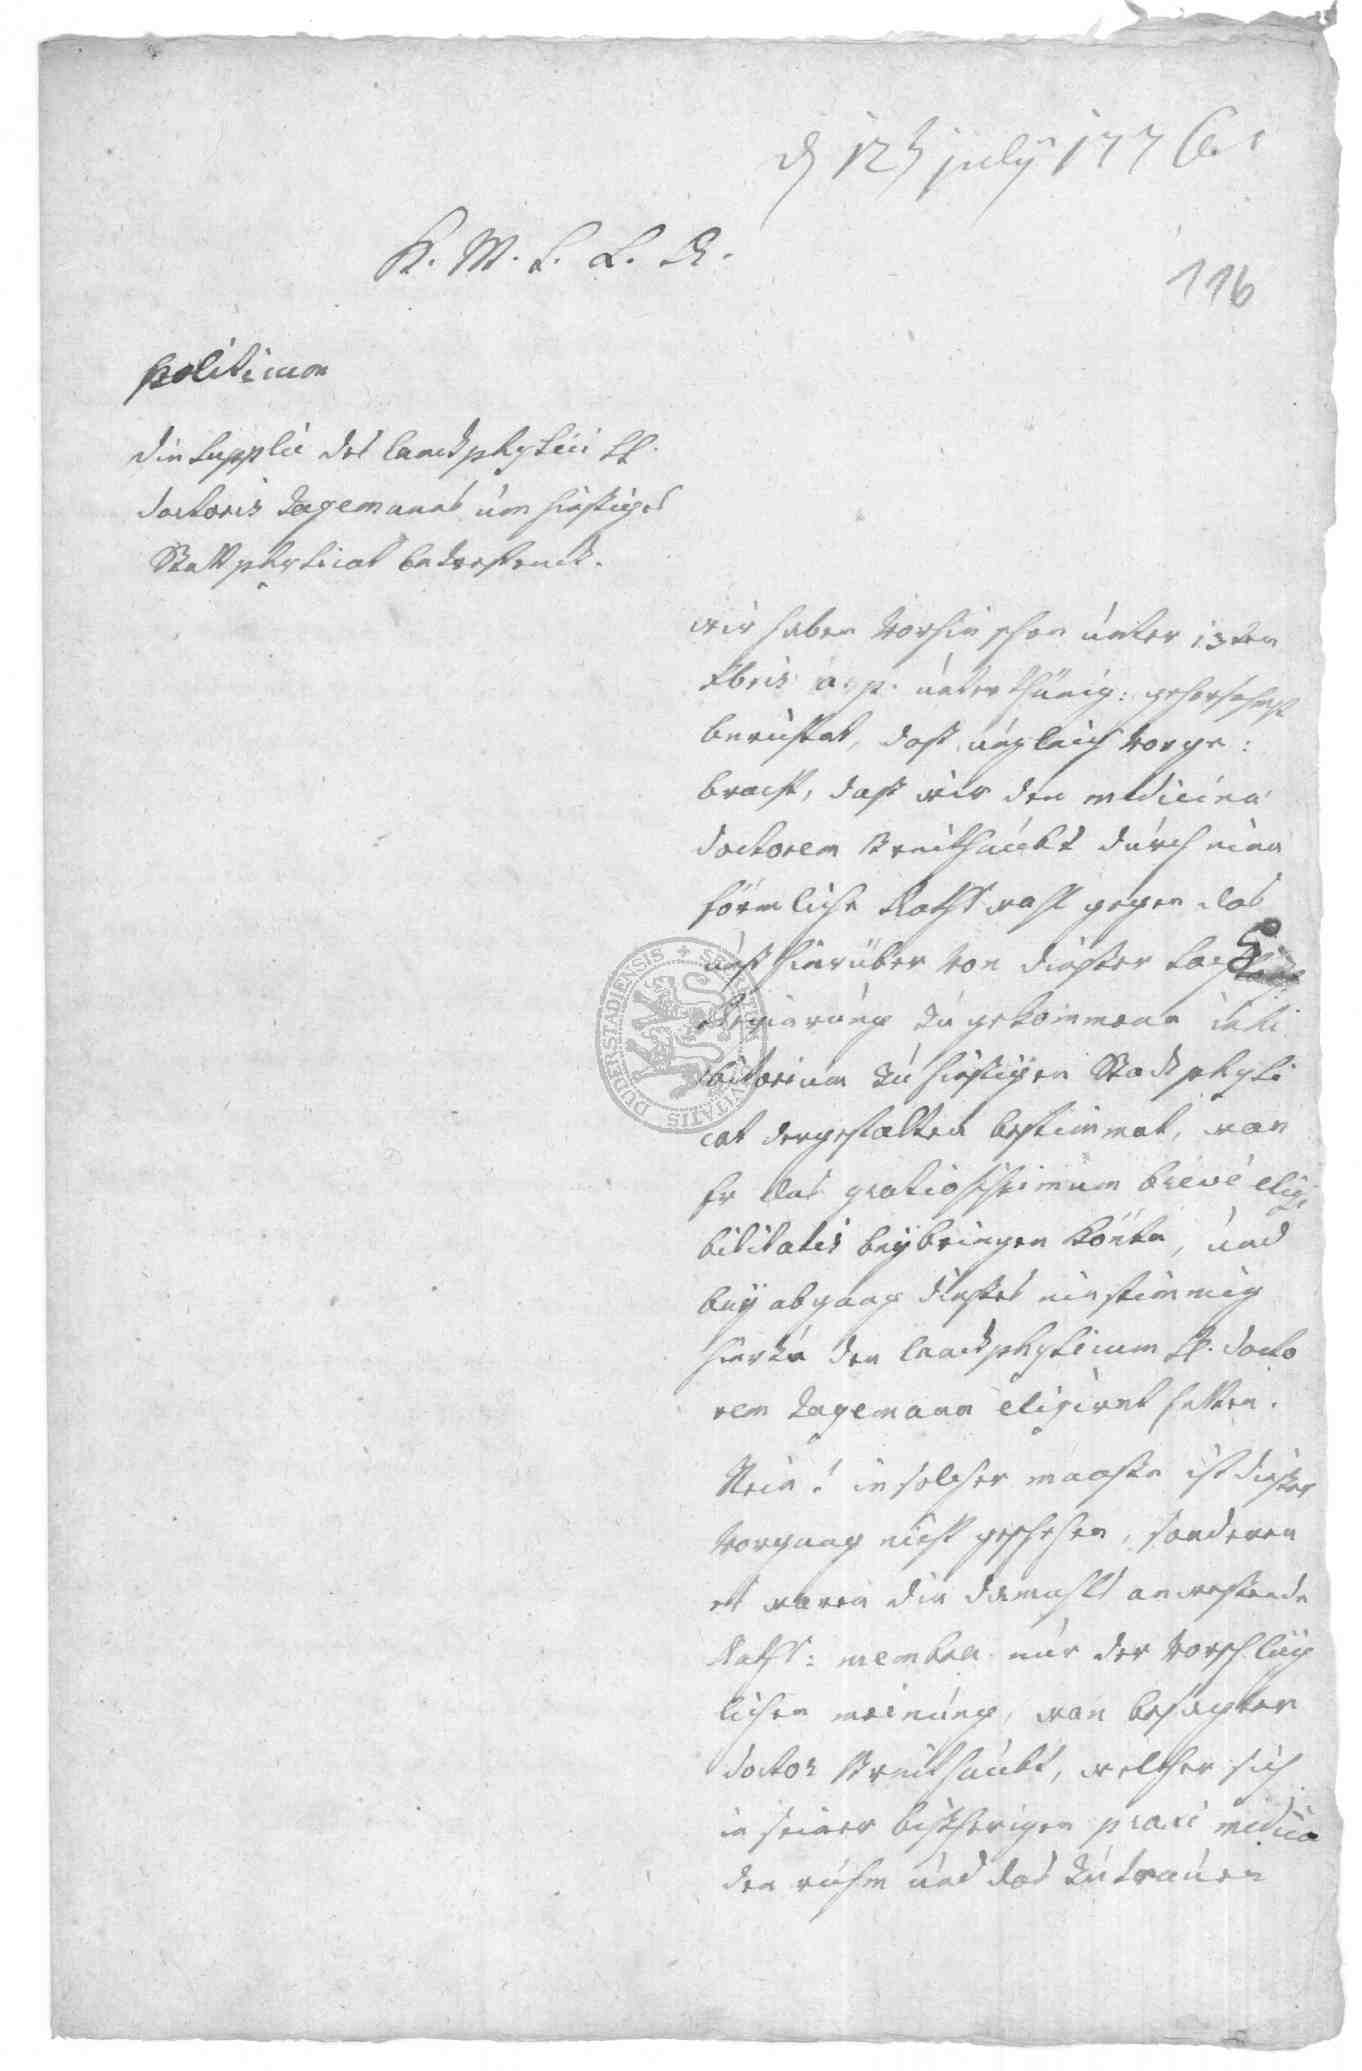 d 12 july 1776
116
K. M. L. L. R.
politicum
die Supplic des landphysici H.
doctoris Hagemanns um hiesiges
Stattphysicat betreffend.
wir haben vorhin schon unter 13ten
Xbris a. p. unterthänig: gehorsahmst
berichtet, daß ungleich vorge:
bracht, daß wir den medicinä
doctorem Breithaubt durch eine
förmliche Raths wahl gegen das
unß hierüber von
Regierung zu gekommene inhi
bitorium zu hiesigen Stadtphysi
cat dergestalten bestimmet, wan
Er das gratiosissimum breve eligi
bilitatis beybringen könte, und
bey abgang dießes einstimmig
hierzu den landphysicum H. docto
rem Hagemann eligiret hetten.
Nein! in solcher maaße ist dießer
vorgang nicht geschehen, sonderen
es waren die damahls anweßende
Raths: membra nur der vorschläg
lichen meinung, wan besagter
doctor Breithaubt, welcher sich
in seiner bißherigen praxi medica
den ruhm und das zutrauen
SIGILLUM CIVITATIS DUDERSTADIENSIS